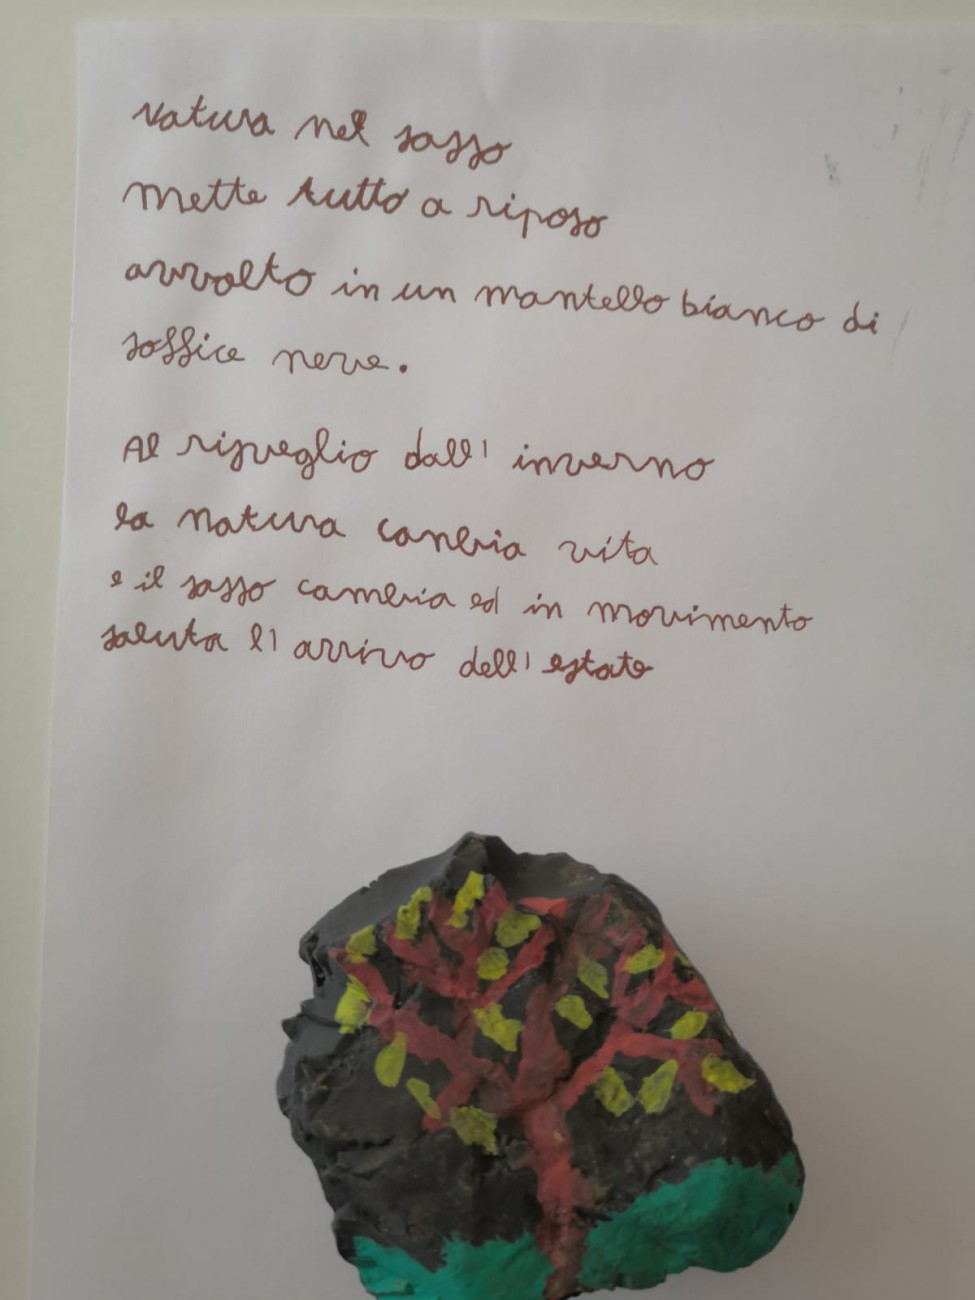 Natura nel sasso
mette tutto a riposo
avvolto in un mantello bianco di
soffice neve.
Al risveglio dall' inverno
la natura cambia vita
e il sasso cambia ed in movimento
saluta l' arrivo dell' estate